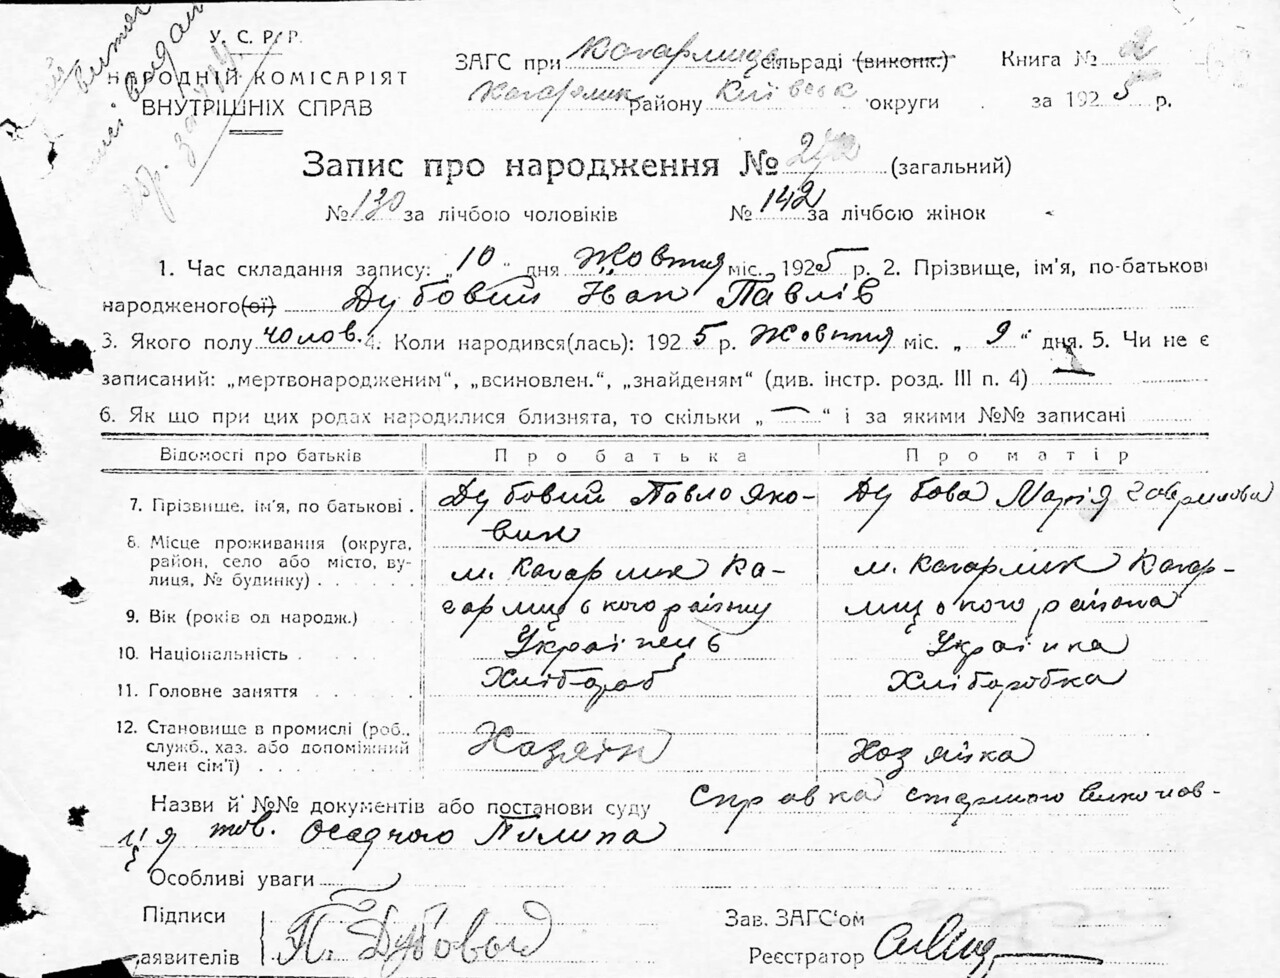 У. С. Р. Р.
НАРОДНІЙ КОМІСАРІЯТ
ВНУТРІШНІХ СПРАВ
ЗАГС при Кагарлицьк сільраді (виконк.) Книга № 2
Кагарлик району Київськ округи за 1925 р.
Запис про народження № (загальний)
№ 130 за лічбою чоловіків № 142 за лічбою жінок
1. Час складання запису: „10“ дня Жовтня міс. 1925 р. 2. Прізвище, ім'я, по-батькові
народженого(ої) Дубовий Іван Павлів
3. Якого полу чолов. 4. Коли народився(лась): 1925 р. Жовтня міс. „9“ дня. 5. Чи не є
записаний: „мертвонародженим“, „всиновлен.“, „знайденям“ (див. інстр. розд. III п. 4)
6. Як що при цих родах народилися близнята, то скільки „—“ і за якими №№ записані
Відомості про батьків Про батька Про матір
7. Прізвище, ім'я, по батькові . Дубовий Павло Яко- Дубова Марія Гаврилова
вич
8. Місце проживання (округа, район, село або місто, вулиця, № будинку) . . . . м. Кагарлик Ка- м. Кагарлик Кагар-
9. Вік (років од народж.) гарлицького району лицького района
10. Національність . Українець Українка
11. Головне заняття . Хлібороб Хліборобка
12. Становище в промислі (роб., служб., хаз. або допоміжний член сім'ї) . Хазяїн Хозяйка
Назви й №№ документів або постанови суду Справка старшого виконав-
ця тов. Осадчого Пилипа
Особливі уваги
Підписи П. Дубовы Зав. ЗАГС‘ом
заявителів Реєстратор